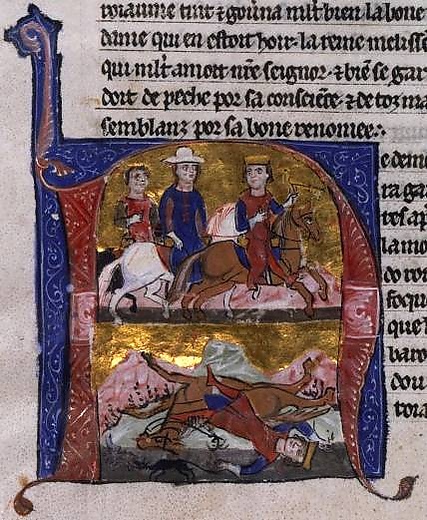 roiaume tint ⁊ gouuna mlt bien la bone
dame qui en estoit hoir· la reine melisse
qui mlt amoit nre seignor· ⁊ biē se gar
doit de peche por sa consciēce· ⁊ de toz ma
semblanz por sa bone renomee:·
e deme
ra gar
tres ap
la mo
do ror
foq̄ue
que l
baro
dou